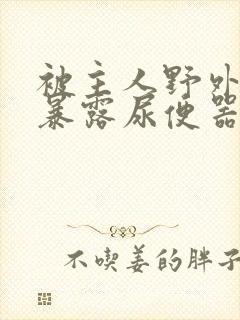 被主人野外
暴露尿便器
不喫姜的胖子